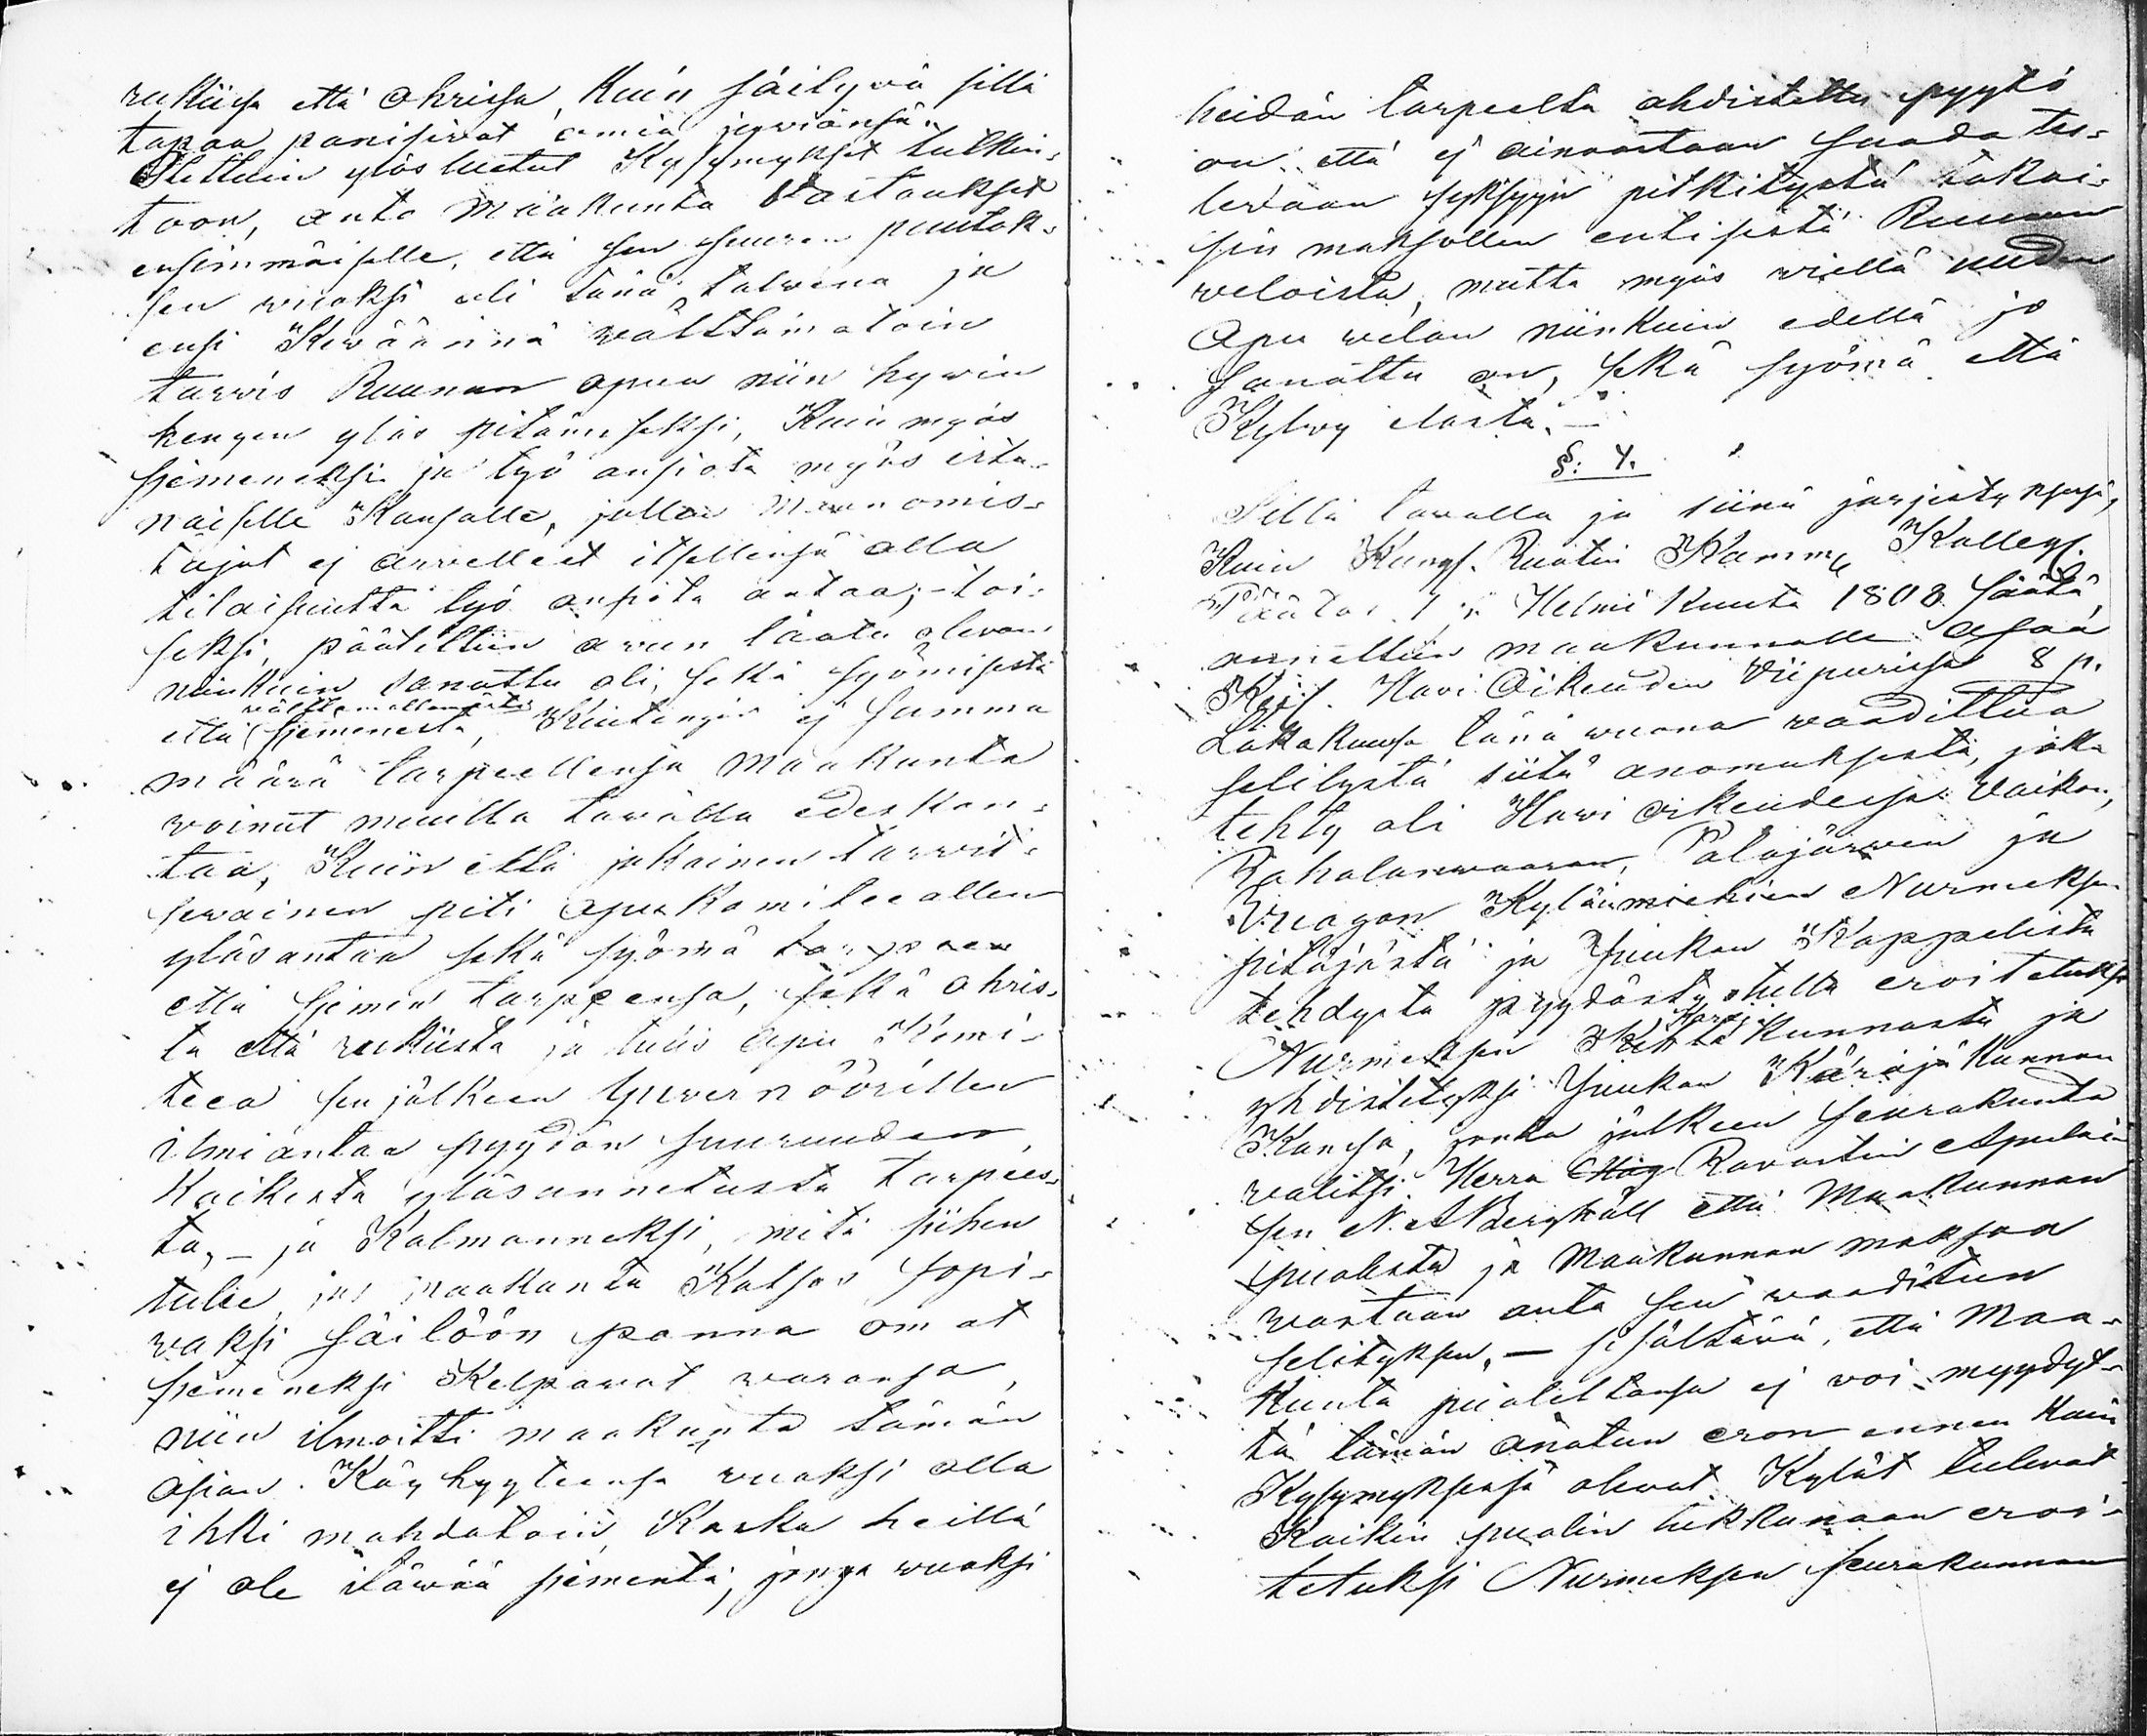 rukiisa että ohrissa, Kuin säilywä sillä
tapaa panisivat omia jywiänsä.
Otettuin ylös luetut Kysymykset tutkin-
toon, anto Maakunta Vastaukset
ensimmäiselle, että sen suuren puutok-
sen wuoksi oli tänä talwena ja
ensi Kewäännä wälttämätöin
tarwis Ruunan apua niin hywin
hengen ylös pitämiseksi, Kuin myös
siemeneksi ja työ ansiota myös irta-
naiselle Kansalle, jollen Maan omis-
tajat ej arvelleet itsellensä olla
tilaisuutta työ ansiota antaa; - toi-
seksi, päätettiin avun laatu olevan
niinkuin sanottu oli, sekä syömisestä
wälttämättömästä
että siemenestä, Kuitengin ej summa
määrä tarpeellensa Maakunta
woinut muulla tawalla edeskan-
taa, Kuin että jokainen tarwit-
sewainen piti apukomiteeallen
ylösantaa sekä syömä tarpeen
että siemen tarpeensa, sekä ohris-
ta että rukiista ja tuiis apu Komi-
teea sen jälkeen Guvernöörillen
ilmiantaa pyydön suuruuden
Kaikesta ylösannetusta tarpees-
ta, - ja Kolmanneksi, mitä siihen
tulee, jos maakunta Katsos sopi-
waksi säilöön panna omat
siemeneksi Kelpawat waransa,
niin ilmoitti maakunta tämän
asian. Köyhyytensä wuoksi olla
ihki mahdotoin, Koska heillä
ej ole itäwää siementä, jonga wuoksi
heidän tarpeelta ahdistettu pyytö
on, että ej ainoastaan saada tu-
lewaan syksyyn pitkitystä takai-
sin maksollen entisestä Ruunun
weloista, mutta myös wiellä uuden
Apu welan niinkuin edellä jo
sanottu on, sekä syömä että
Kylwy elosta. —
§: 4.
Sillä tawalla ja siinä järjestyksesä,
Kuin Kungs. Ruotin Kamm. Kolleg.
Päätös 1 p. Helmi Kuuta 1808 säätä,
annettiin maakunnalle asaa
Keis. Howi Oikeuden Viipurissa 8 p.
Lokakuusa tänä wuona waadittua
selitystä siitä anomuksesta, joka
tehty oli Howi oikeudesa Vaikon,
Rahalanwaaran, Palojärwen ja
Vuagon Kylänmiehien Nurmeksen
pitäjästä ja Juukan Kappelista
tehdystä pyydöstä tulla eroitetuksi
Käräjä
Nurmeksen kunnasta ja
yhdistetyksi Juukan Käräjä Kunnan
Kansa, jonka jälkeen seurakunta
walitsi Herra Rovastin Apulai-
sen N. A Berghäll että Maakunnan
puolesta ja Maakunnan maksoa
wastaan anta sen waaditun
selityksen, — sisältäwä, että Maa-
kunta puolestansa ej woi myydyt-
tä tämän anotun eron ennen kuin
Kysymyksesä olewat Kylät tulewat
Kaikin puolin lukkunaan eroi-
tetuksi Nurmeksen seurakunnan